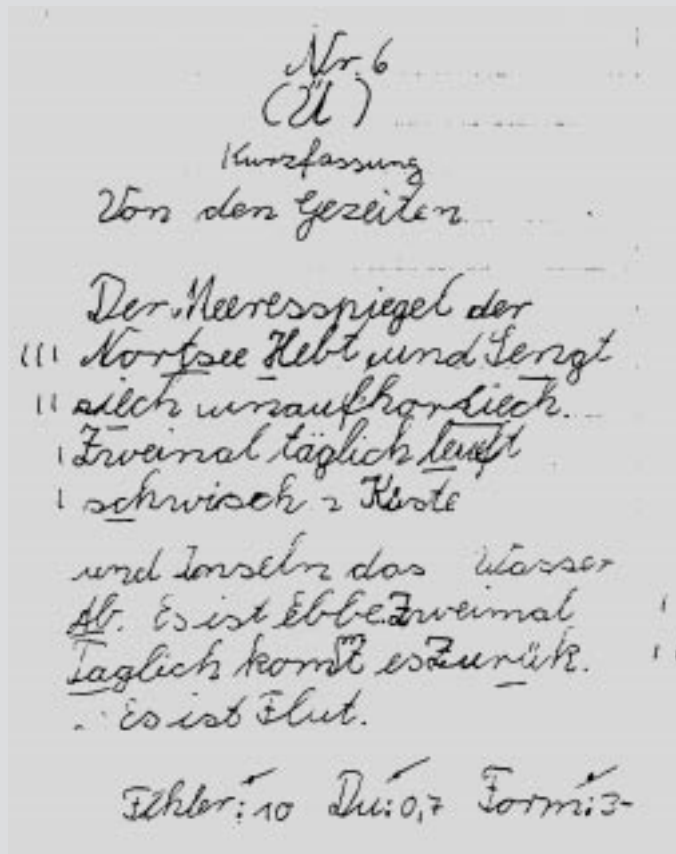 Nr. 6
(Ü)
Kurzfassung
Von den Gezeiten
Der Meeresspiegel der
Nortsee Hebt und Sengt
siech unaufhorliech.
Zweimal täglich leuft
schwisch Küste
und Innseln das Wasser
Ab. Es ist Ebbe. Zweimal
Taglich komt es Zurük.
Es ist Flut.
Fehler: 10 Du: 0,7 Form: 3-